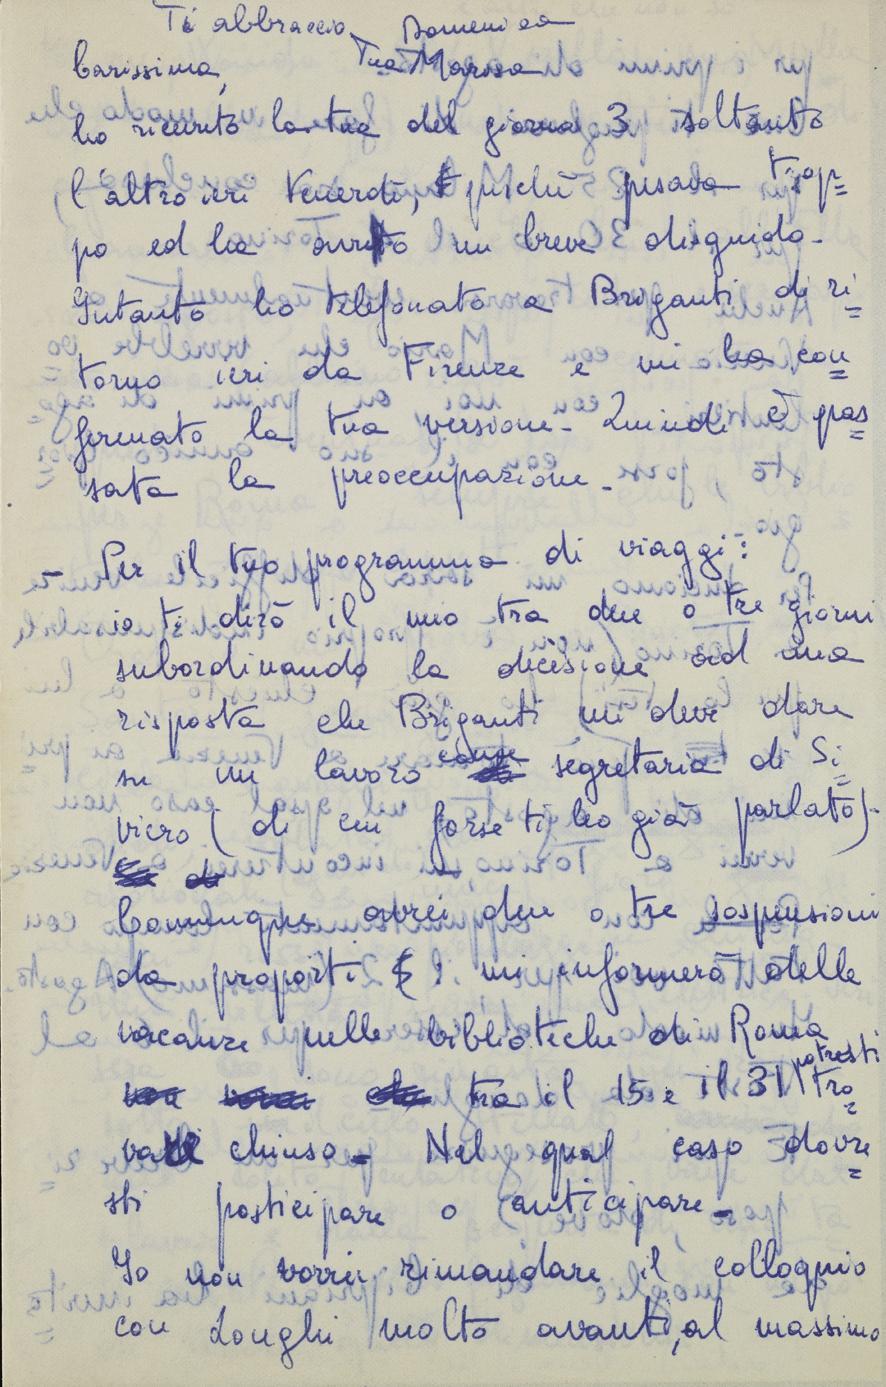 Ti abbraccio Domenica
Tua Marisa
Carissima,
ho ricevuto la tua del giorno 3 soltanto
l'altro ieri Venerdì, poichè pesava trop=
po ed ha avuto un breve disguido.
Intanto ho telefonato a Briganti di ri=
torno ieri da Firenze e mi ha con=
fermato la tua versione - Quindi è pas=
sata la preoccupazione -
- Per il tuo programma di viaggi:
io ti dirò il mio tra due o tre giorni
subordinando la decisione ad una
risposta che Briganti mi deve dare
su un lavoro come segretaria di Si=
viero (di cui forse ti ho già parlato) -
Comunque avrei due o tre sospensioni
da proporti: mi informerò delle
vacanze nelle biblioteche di Roma
tra il 15 e il 31 potresti tro=
vare chiuso - Nel qual caso dovre=
sti posticipare o anticipare -
Io non vorrei rimandare il colloquio
con Longhi molto avanti, al massimo